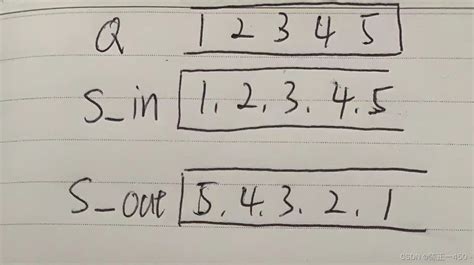 Q 1 2 3 4 5
S_in 1. 2. 3. 4. 5
S_out 5. 4. 3. 2. 1